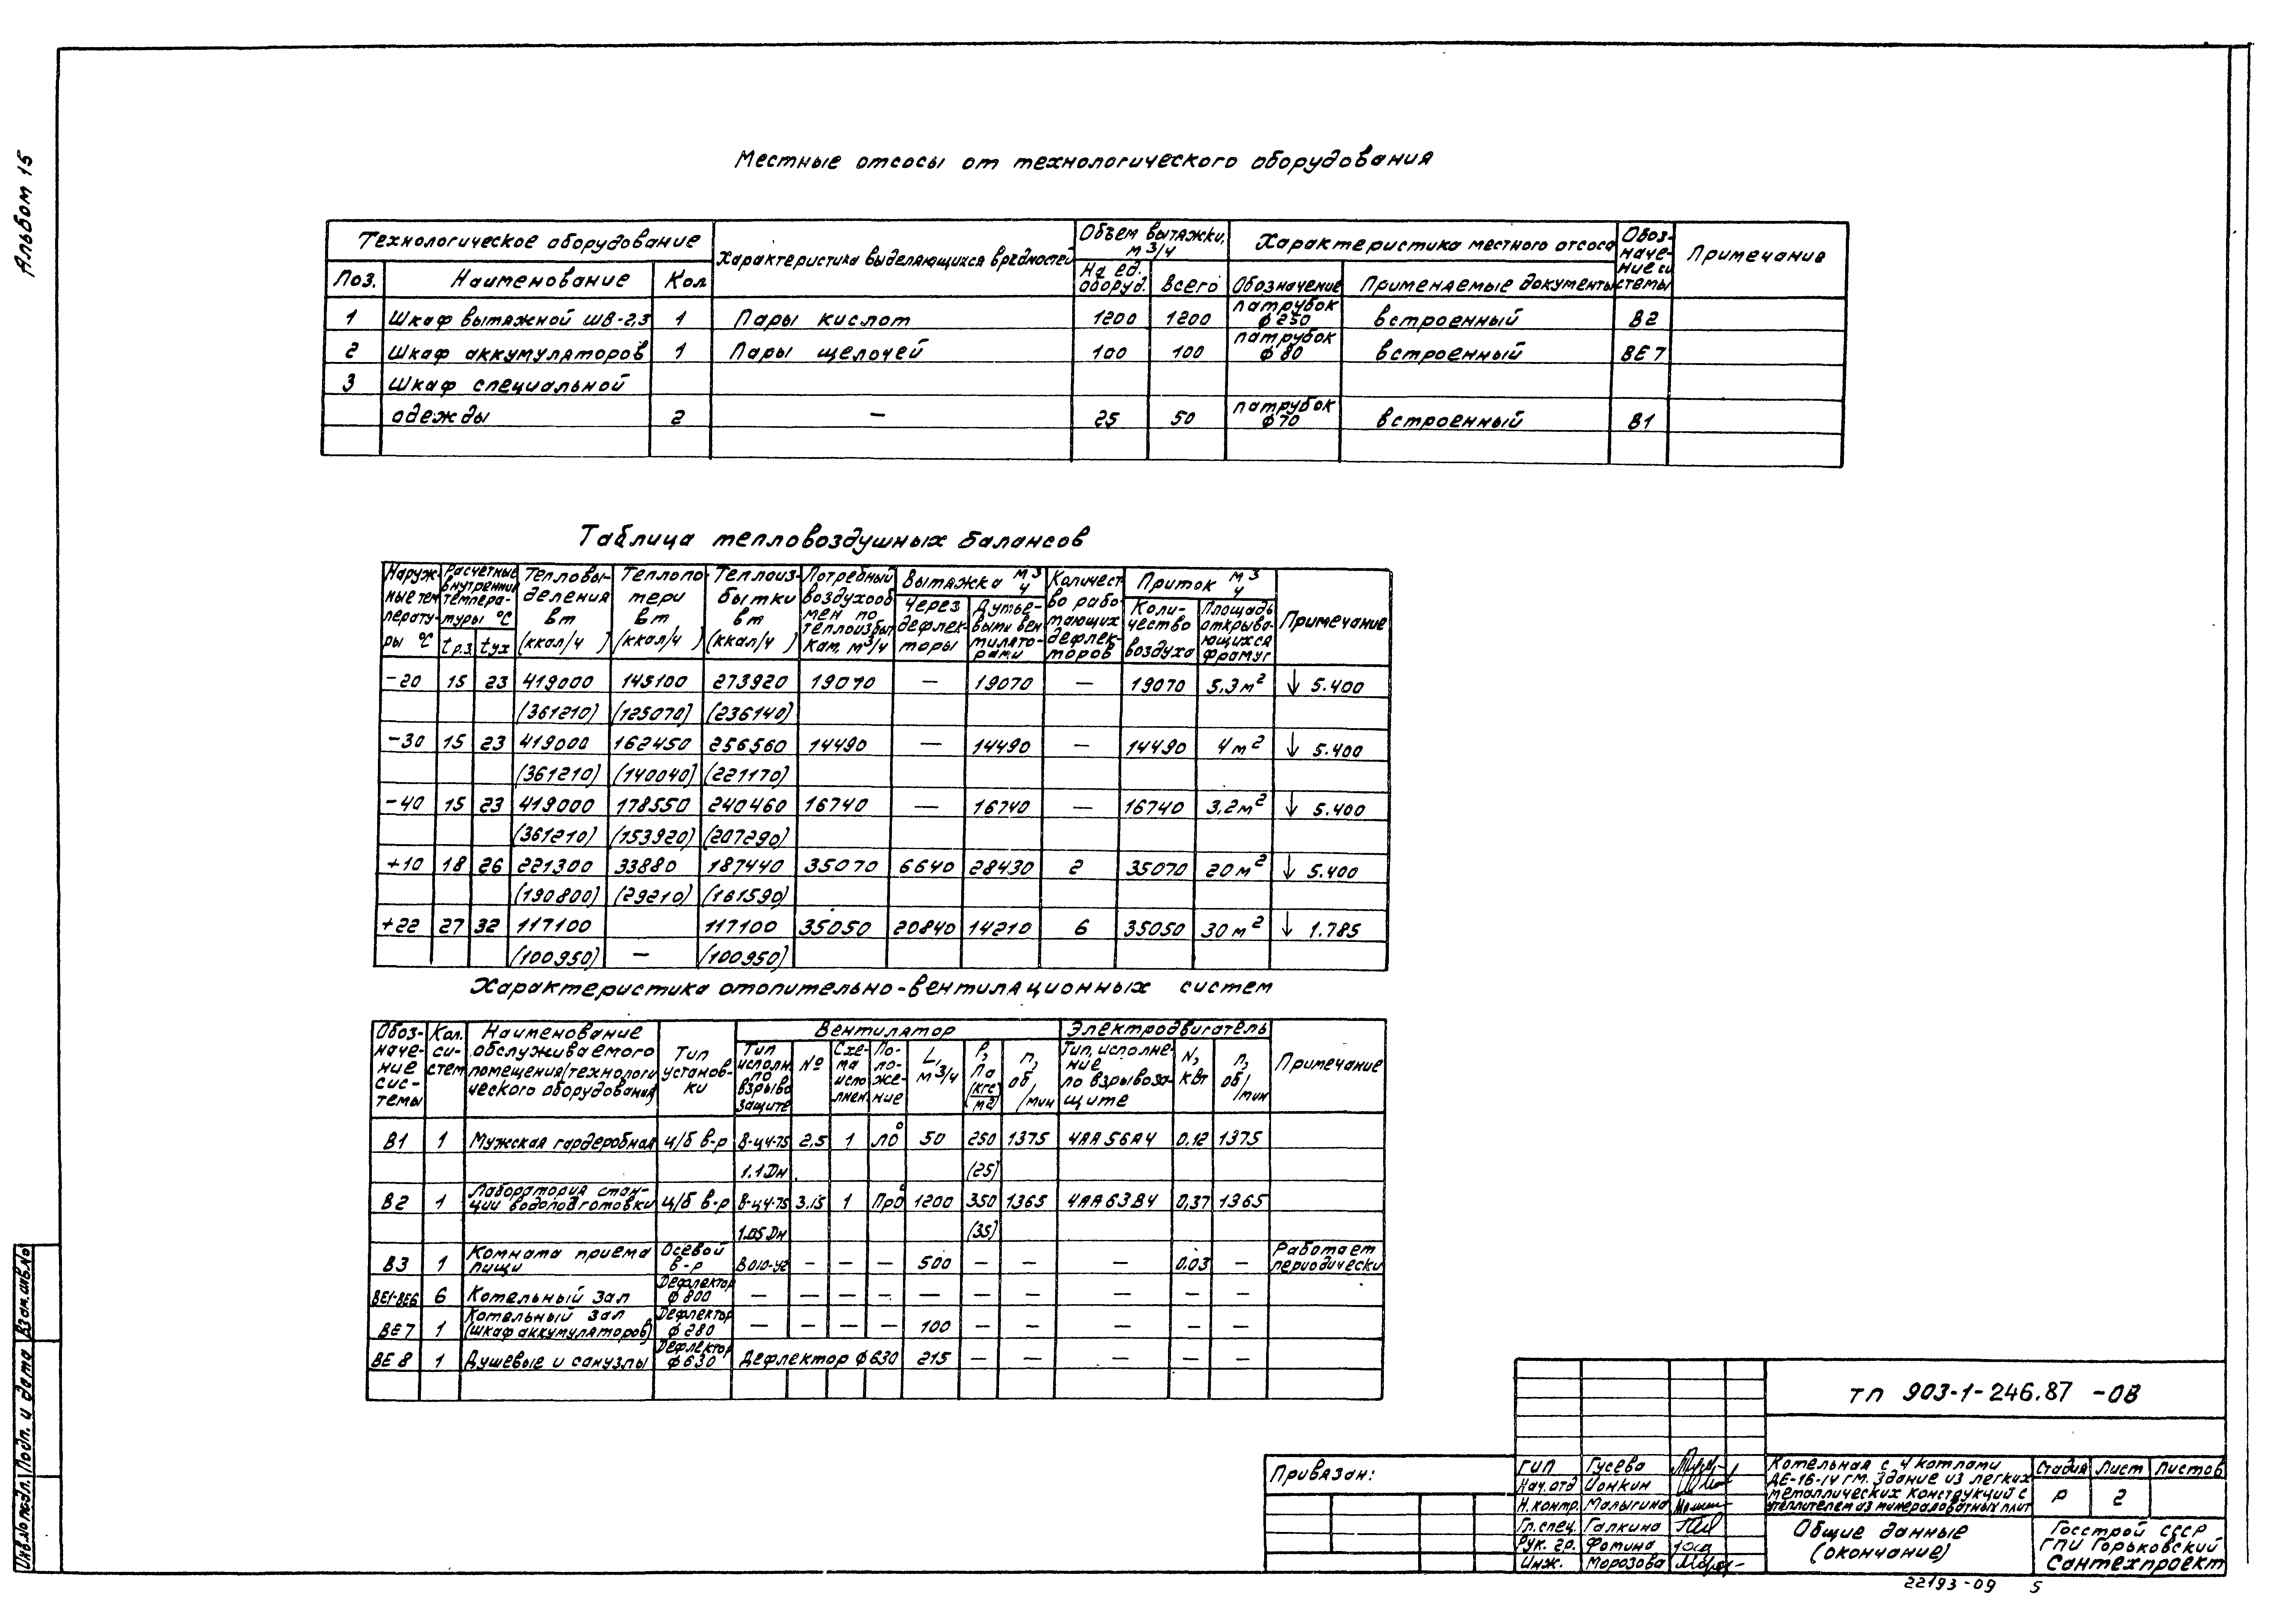 Альбом 15
Местные отсосы от технологического оборудования
Технологическое оборудование | Характеристика выделяющихся вредностей | Объем вытяжки, м³/ч | Характеристика местного отсоса | Обозначение системы | Примечание
Поз. | Наименование | Кол | На ед. оборуд. | Всего | Обозначение | Применяемые документы
1 | Шкаф вытяжной ШВ-2,3 | 1 | Пары кислот | 1200 | 1200 | патрубок ф250 | встроенный | В2
2 | Шкаф аккумуляторов | 1 | Пары щелочей | 100 | 100 | патрубок ф80 | встроенный | ВЕ7
3 | Шкаф специальной
одежды | 2 | — | 25 | 50 | патрубок ф70 | встроенный | В1
Таблица тепловоздушных балансов
Наружные температуры °С | Расчетные внутренние температуры °С | Тепловыделения вт (ккал/ч) | Теплопотери вт (ккал/ч) | Теплоизбытки вт (ккал/ч) | Потребный воздухообмен по теплоизбыткам, м³/ч | Вытяжка м³/ч | Количество работающих дефлекторов | Приток м³/ч | Примечание
tр.з. | tух | Через дефлекторы | Дутьевыми вентиляторами | Количество воздуха | Площадь открывающихся фрамуг
-20 | 15 | 23 | 419000 | 145100 | 273920 | 19070 | — | 19070 | — | 19070 | 5,3м² | ↓ 5.400
(361210) | (125070) | (236140)
-30 | 15 | 23 | 419000 | 162450 | 256560 | 14490 | — | 14490 | — | 14490 | 4м² | ↓ 5.400
(361210) | (140040) | (221170)
-40 | 15 | 23 | 419000 | 178550 | 240460 | 16740 | — | 16740 | — | 16740 | 3,2м² | ↓ 5.400
(361210) | (153920) | (207290)
+10 | 18 | 26 | 221300 | 33880 | 187440 | 35070 | 6640 | 28430 | 2 | 35070 | 20м² | ↓ 5.400
(190800) | (29210) | (161590)
+22 | 27 | 32 | 117100 | 117100 | 35050 | 20840 | 14210 | 6 | 35050 | 30м² | ↓ 1.785
(100950) | — | (100950)
Характеристика отопительно-вентиляционных систем
Обозначение системы | Кол. систем | Наименование обслуживаемого помещения (технологического оборудования) | Тип установки | Вентилятор | Электродвигатель | Примечание
Тип исполн. по взрывозащите | № | Схема исполнен. | Положение | L, м³/ч | Р, Па (кгс/м2) | п, об/мин | Тип, исполнение по взрывозащите | N, кВт | п, об/мин
В1 | 1 | Мужская гардеробная | ц/б в-р | В-Ц4-75 | 2.5 | 1 | Л0° | 50 | 250 | 1375 | 4АА56А4 | 0.12 | 1375
1.1Дн | (25)
В2 | 1 | Лаборатория станции водоподготовки | ц/б в-р | В-Ц4-75 | 3.15 | 1 | Пр0° | 1200 | 350 | 1365 | 4АА63В4 | 0,37 | 1365
1.05Дн | (35)
В3 | 1 | Комната приема пищи | Осевой в-р | | — | — | — | 500 | — | — | — | 0.03 | — | Работает периодически
ВЕ1-ВЕ6 | 6 | Котельный зал | Дефлектор ф800 | — | — | — | — | — | — | — | — | — | —
ВЕ7 | 1 | Котельный зал (шкаф аккумуляторов) | Дефлектор ф280 | — | — | — | — | 100 | — | — | — | — | —
ВЕ8 | 1 | Душевые и санузлы | Дефлектор ф630 | Дефлектор ф630 | 215 | — | — | — | — | —
ТП 903-1-246.87 -ОВ
Привязан:
ГИП Гусева
Нач.отд Ионкин
Н.контр. Малыгина
Гл.спец. Галкина
Рук. гр. Фомина
Инж. Морозова
Котельная с 4 котлами
ДЕ-16-14 ГМ. Здание из легких
металлических конструкций с
утеплителем из минераловатных плит
Стадия | Лист | Листов
Р | 2
Общие данные
(окончание)
Госстрой СССР
ГПИ Горьковский
Сантехпроект
22193-09 5
Инв.№ подл. | Подп. и дата | Взам.инв.№